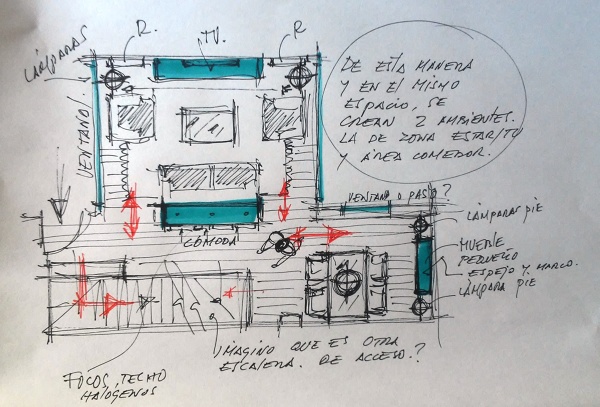 LÁMPARAS
R.
TV.
R
DE ESTA MANERA
Y EN EL MISMO
ESPACIO, SE
CREAN 2 AMBIENTES.
LA DE ZONA ESTAR/TV
Y ÁREA COMEDOR.
VENTANAL
VENTANA O PASO?
LÁMPARAS PIE
CÓMODA
MUEBLE
PEQUEÑO
ESPEJO Y MARCO.
LÁMPARA PIE
IMAGINO QUE ES OTRA
ESCALERA. DE ACCESO?
FOCOS, TECHO
HALOGENOS